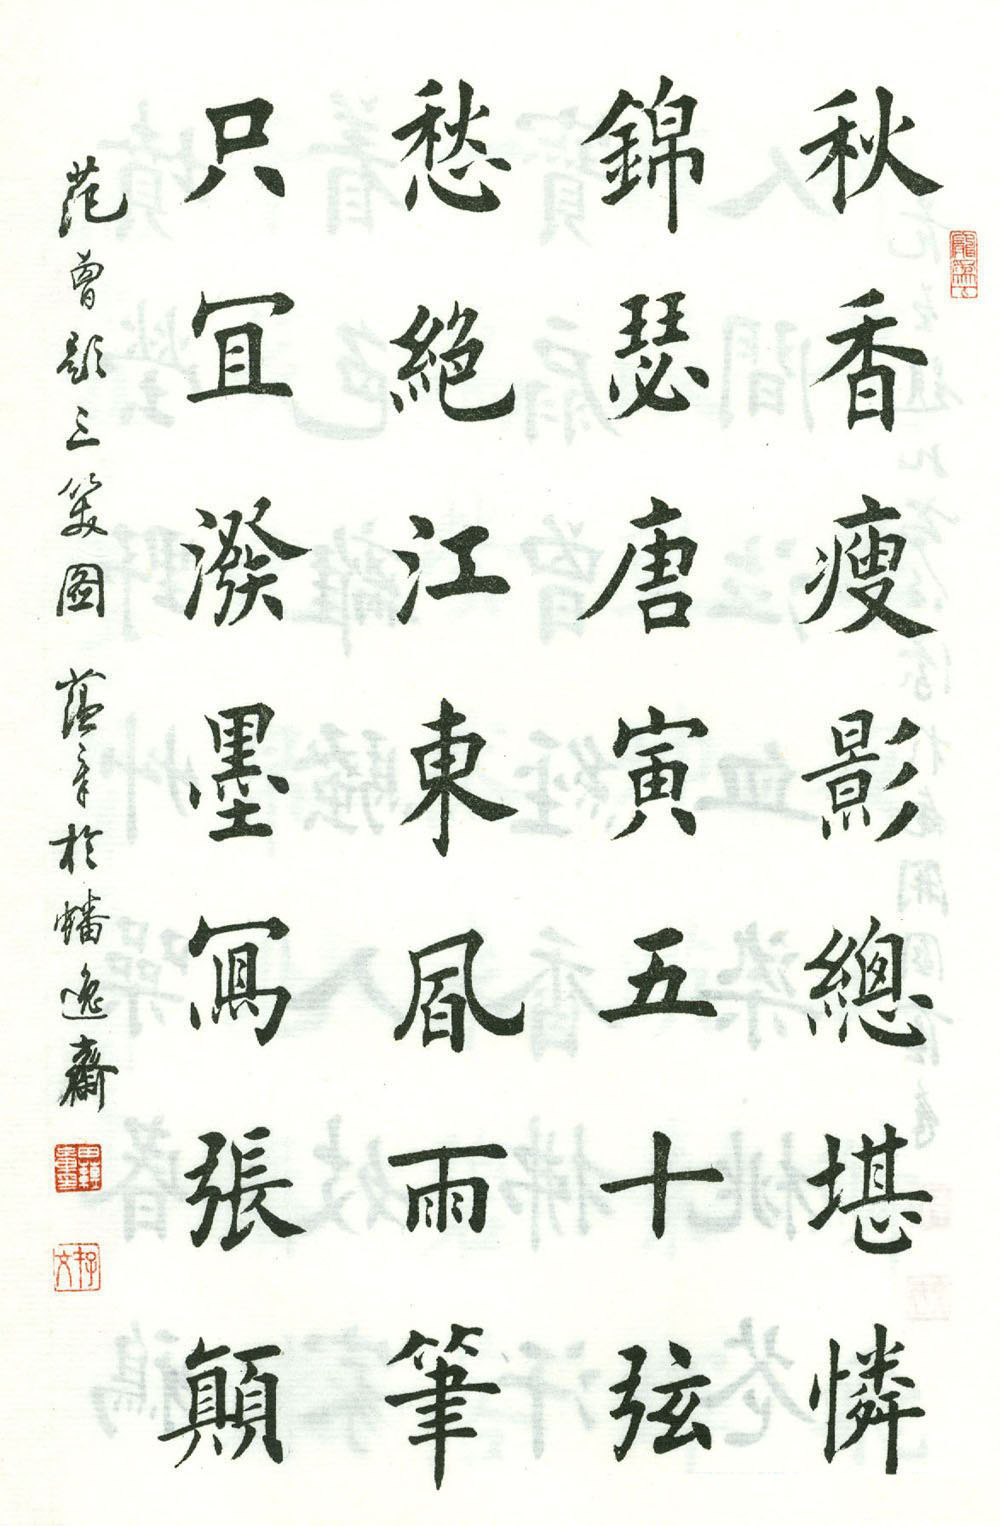 秋香瘦影總堪憐
錦瑟唐寅五十弦
愁絕江東風雨筆
只宜潑墨寫張顛
范曾題三笑圖 蕴章於蟠逸齋